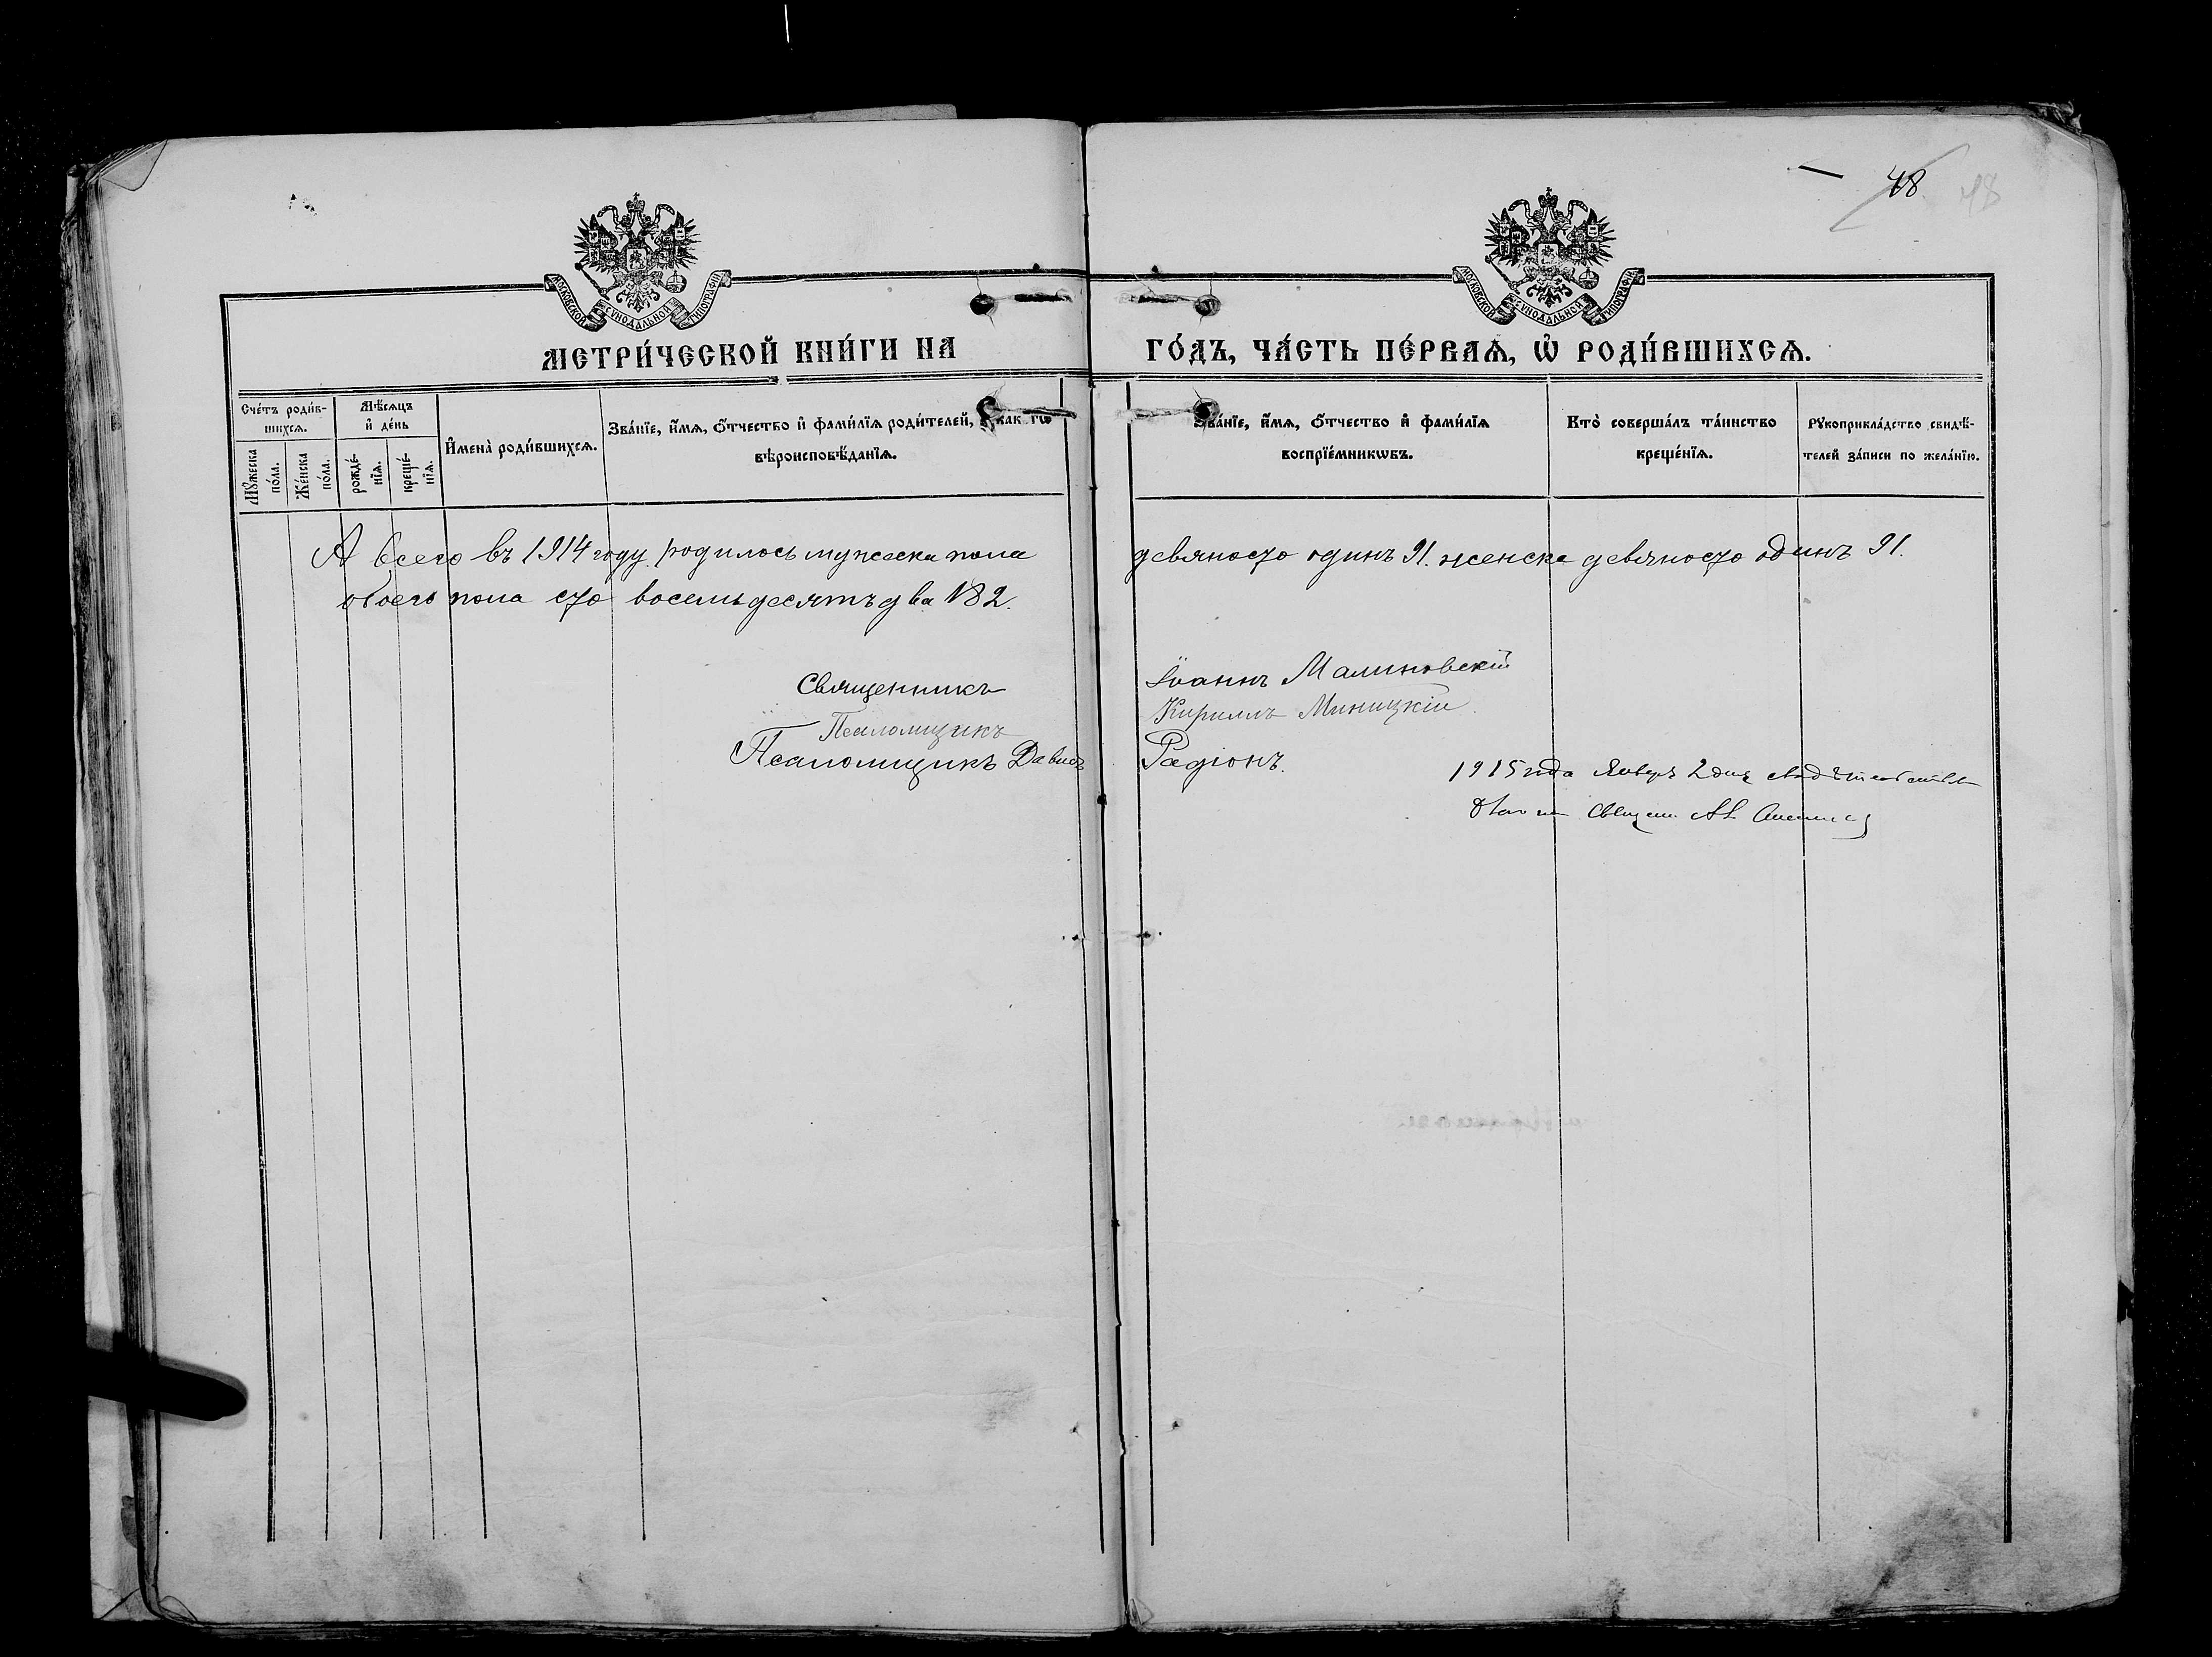 48 48
МОСКОВСКОЙ СѴНОДАЛЬНОЙ ТИПОГРАФІИ
МОСКОВСКОЙ СѴНОДАЛЬНОЙ ТИПОГРАФІИ
МЕТРИ́ЧЕСКОЙ КНИ́ГИ НА
ГО́ДЪ, ЧА́СТЬ ПЕ́РВАѦ, Ѡ҆ РОДИ́ВШИХСѦ.
Сче́тъ роди́в-
шихсѧ.
Мꙋ́жеска по́ла.
Же́нска по́ла.
Мѣ́сѧцъ
и҆ де́нь
рожде́-
нїѧ.
креще́-
нїѧ.
И҆мена̀ роди́вшихсѧ.
Зва́нїе, и҆́мѧ, ѻ҆́тчество и҆ фами́лїѧ роди́телей, и҆ как гѡ
вѣроисповѣ́данїѧ.
Зва́нїе, и҆́мѧ, ѻ҆́тчество и҆ фами́лїѧ
воспрїе́мникѡвъ.
Кто̀ соверша́лъ та́инство
креще́нїѧ.
Рꙋкоприкла́дство свидѣ́-
телей за́писи по жела́нїю.
А всего въ 1914 году родилось мужеска пола
девяносто одинъ 91. женска девяносто одинъ 91.
обоего пола сто восемьдесятъ два 182.
Священникъ Іоаннъ Малиновскій
Псаломщикъ Кириллъ Миницкій.
Псаломщикъ Давидъ Радіонъ.
1915 года Январь 2 дня